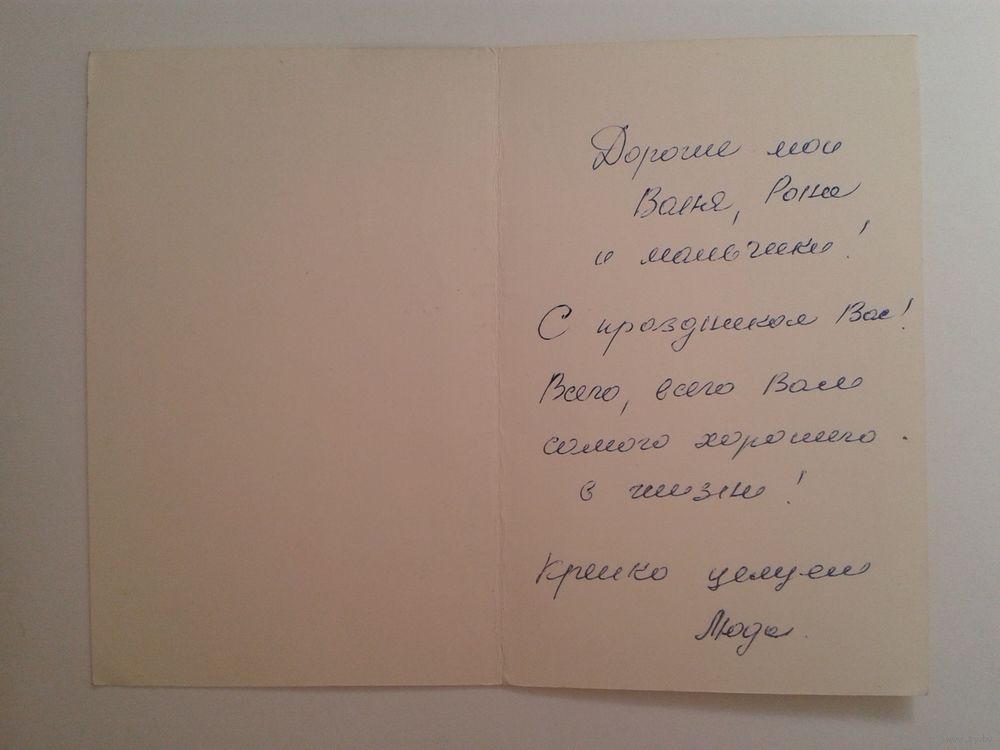 Дорогие мои
Ваня,
и мальчики!
С праздником Вас!
Всего, всего Вам
самого хорошего
в жизни!
Крепко целуем
Люда.